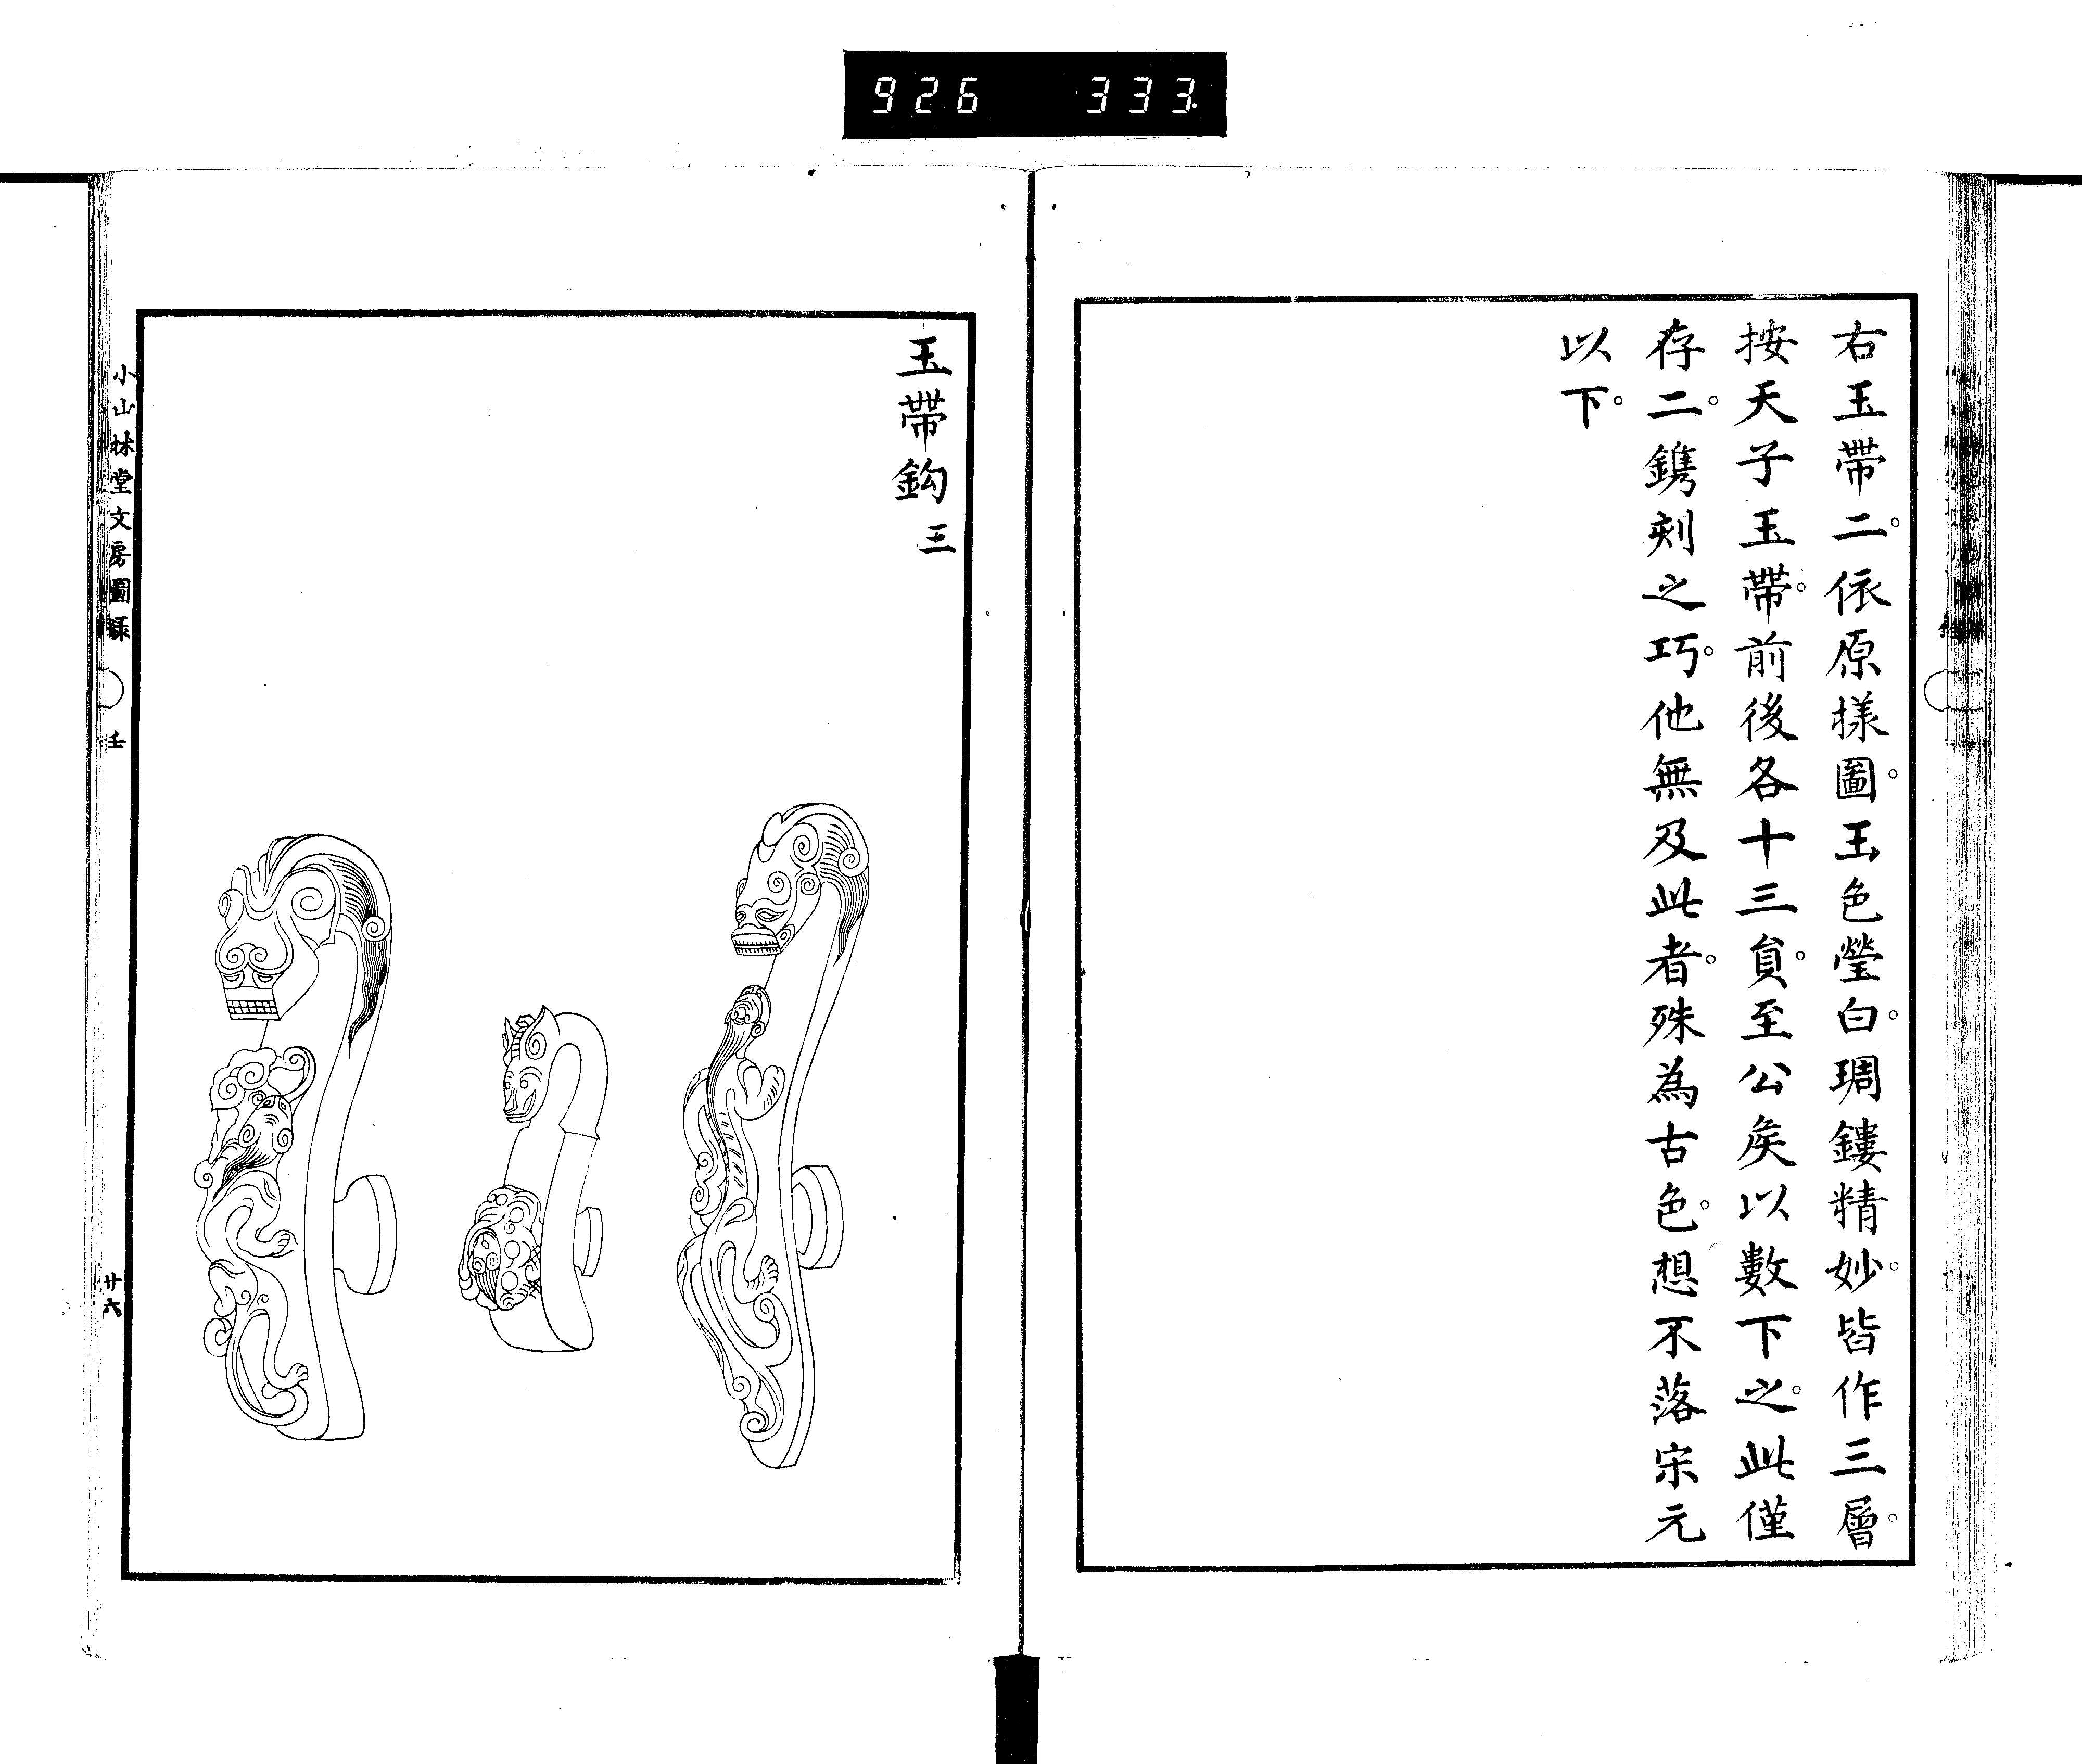 926 333
右玉帶二。依原様圖。玉色瑩白。琱鏤精妙。皆作三層。
按天子玉帶。前後各十三㒷。至公矦以數下之。此僅
存二。鎸刻之巧。他無及此者。殊為古色。想不落宋元
以下。
玉帶鈎 三
小山林堂文房圖録 壬 廿六